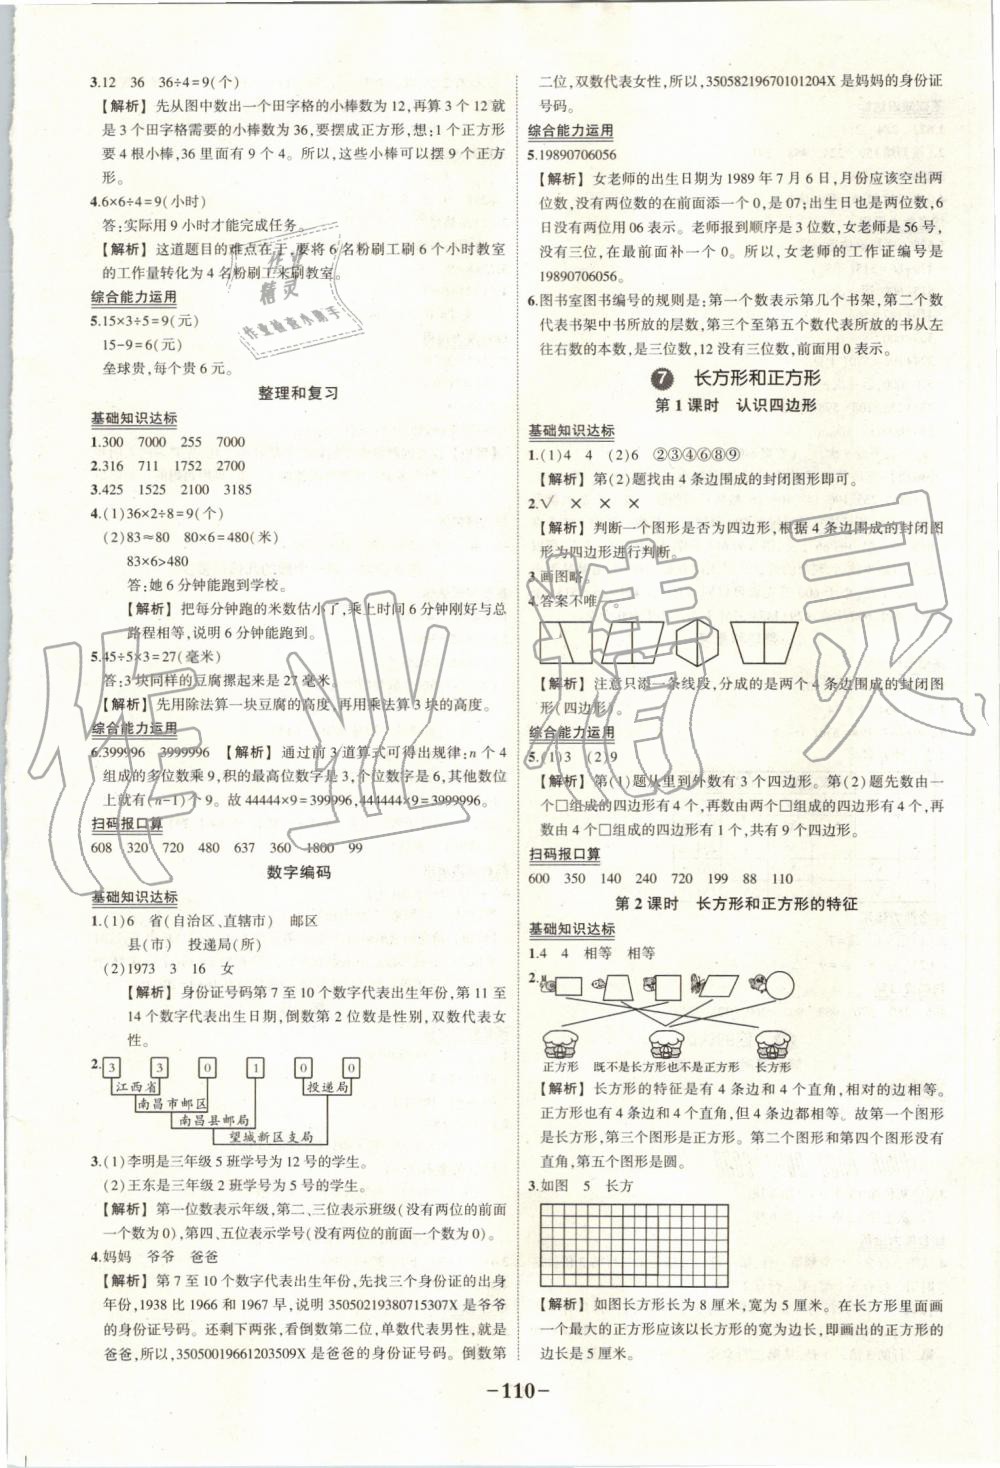 3.12 36 36÷4=9(个)
【解析】先从图中数出一个田字格的小棒数为 12,再算 3 个 12 就
是 3 个田字格需要的小棒数为 36,要摆成正方形,想:1 个正方形
要 4 根小棒,36 里面有 9 个 4。所以,这些小棒可以摆 9 个正方
形。
4.6×6÷4=9(小时)
答:实际用 9 小时才能完成任务。
【解析】这道题目的难点在于,要将 6 名粉刷工刷 6 个小时教室
的工作量转化为 4 名粉刷工来刷教室。
综合能力运用
5.15×3÷5=9(元)
15-9=6(元)
垒球贵,每个贵 6 元。
整理和复习
基础知识达标
1.300 7000 255 7000
2.316 711 1752 2700
3.425 1525 2100 3185
4.(1)36×2÷8=9(个)
(2)83≈80 80×6=480(米)
83×6>480
答:她 6 分钟能跑到学校。
【解析】把每分钟跑的米数估小了,乘上时间 6 分钟刚好与总
路程相等,说明 6 分钟能跑到。
5.45÷5×3=27(毫米)
答:3 块同样的豆腐摞起来是 27 毫米。
【解析】先用除法算一块豆腐的高度,再用乘法算 3 块的高度。
综合能力运用
6.399996 3999996 【解析】通过前 3 道算式可得出规律:n 个 4
组成的多位数乘 9,积的最高位数字是 3,个位数字是 6,其他数位
上就有(n-1)个 9。故 44444×9=399996,444444×9=3999996。
扫码报口算
608 320 720 480 637 360 1800 99
数字编码
基础知识达标
1.(1)6 省(自治区、直辖市) 邮区
县(市) 投递局(所)
(2)1973 3 16 女
【解析】身份证号码第 7 至 10 个数字代表出生年份,第 11 至
14 个数字代表出生日期,倒数第 2 位数是性别,双数代表女
性。
2. 3 3 0 1 0 0
江西省 投递局
南昌市邮区
南昌县邮局
望城新区支局
3.(1)李明是三年级 5 班学号为 12 号的学生。
(2)王东是三年级 2 班学号为 5 号的学生。
【解析】第一位数表示年级,第二、三位表示班级(没有两位的前面
一个数为 0),第四、五位表示学号(没有两位的前面一个数为 0)。
4.妈妈 爷爷 爸爸
【解析】第 7 至 10 个数字代表出生年份,先找三个身份证的出身
年份,1938 比 1966 和 1967 早,说明 35050219380715307X 是爷爷
的身份证号码。还剩下两张,看倒数第二位,单数代表男性,就是
爸爸,所以,35050019661203509X 是爸爸的身份证号码。倒数第
二位,双数代表女性,所以,35058219670101204X 是妈妈的身份证
号码。
综合能力运用
5.19890706056
【解析】女老师的出生日期为 1989 年 7 月 6 日,月份应该空出两
位数,没有两位数的在前面添一个 0,是 07;出生日也是两位数,6
日没有两位用 06 表示。老师报到顺序是 3 位数,女老师是 56 号,
没有三位,在最前面补一个 0。所以,女老师的工作证编号是
19890706056。
6.图书室图书编号的规则是:第一个数表示第几个书架,第二个数
代表书架中书所放的层数,第三个至第五个数代表所放的书从左
往右数的本数,是三位数,12 没有三位数,前面用 0 表示。
7 长方形和正方形
第 1 课时 认识四边形
基础知识达标
1.(1)4 4 (2)6 ②③④⑥⑧⑨
【解析】第(2)题找由 4 条边围成的封闭图形即可。
2.√ × × ×
【解析】判断一个图形是否为四边形,根据 4 条边围成的封闭图
形为四边形进行判断。
3.画图略。
4.答案不唯一。
【解析】注意只添一条线段,分成的是两个 4 条边围成的封闭图
形(四边形)。
综合能力运用
5.(1)3 (2)9
【解析】第(1)题从里到外数有 3 个四边形。第(2)题先数由一
个□组成的四边形有 4 个,再数由两个□组成的四边形有 4 个,再
数由 4 个□组成的四边形有 1 个,共有 9 个四边形。
扫码报口算
600 350 140 240 720 199 88 110
第 2 课时 长方形和正方形的特征
基础知识达标
1.4 4 相等 相等
2.
正方形 既不是长方形也不是正方形 长方形
【解析】长方形的特征是有 4 条边和 4 个直角,相对的边相等。
正方形也有 4 条边和 4 个直角,但 4 条边都相等。故第一个图形
是长方形,第三个图形是正方形。第二个图形和第四个图形没有
直角,第五个图形是圆。
3.如图 5 长方
【解析】如图长方形长为 8 厘米,宽为 5 厘米。在长方形里面画
一个最大的正方形应该以长方形的宽为边长,即画出的正方形的
边长是 5 厘米。
-110-
作业
精灵
作业检查小助手
作业精灵